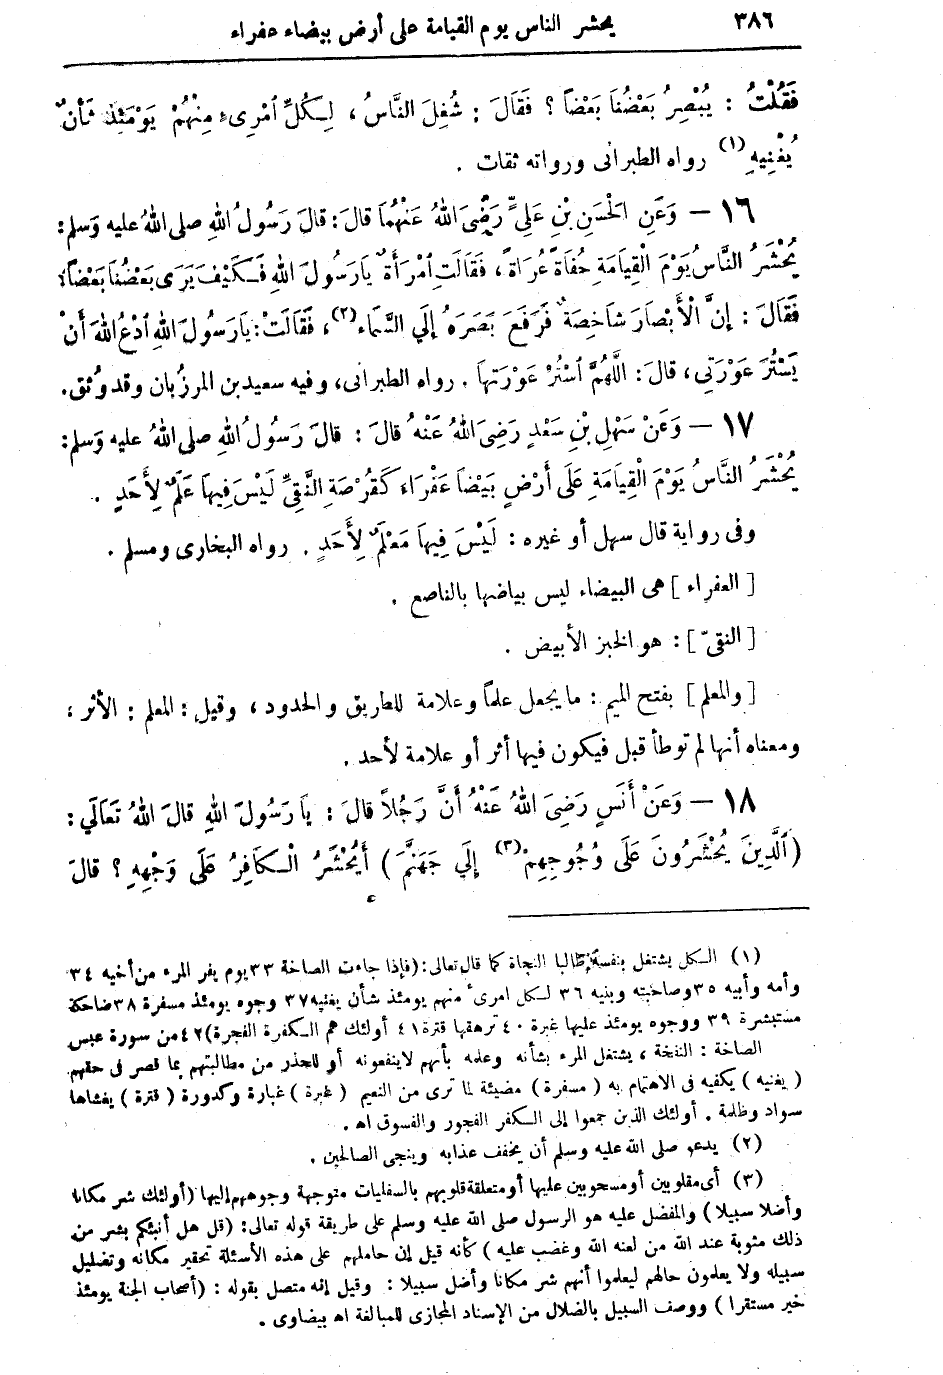 ٣٨٦ يحشر الناس يوم القيامة على أرض بيضاء عفراء
فَقُلْتُ : يُبْصِرُ بَعْضُنَا بَعْضاً ؟ فَقَالَ : شُغِلَ النَّاسُ ، لِكُلِّ ٱمْرِىءٍ مِنْهُمْ يَوْمَئِذٍ شَأْنٌ
يُغْنِيهِ (١) رواه الطبرانى ورواته ثقات .
١٦ – وَعَنِ الْحَسَنِ بْنِ عَلِيٍّ رَضِيَ اللهُ عَنْهُمَا قالَ : قالَ رَسُولُ اللهِ صلى اللهُ عليه وَسلم :
يُحْشَرُ النَّاسُ يَوْمَ الْقِيَامَةِ حُفَاةً عُرَاةً ، فَقَالَتِ ٱمْرَأَةٌ يَارَسُولَ اللهِ فَكَيْفَ يَرَى بَعْضُنَا بَعْضاً؟
فَقَالَ : إِنَّ الْأَبْصَارَ شَاخِصَةٌ فَرَفَعَ بَصَرَهُ إِلَي السَّمَاءِ (٢) ، فَقَالَتْ : يَارَسُولَ اللهِ ٱدْعُ اللهَ أَنْ
يَسْتُرَ عَوْرَتِي ، قالَ : اللَّهُمَّ ٱسْتُرْ عَوْرَتَهَا . رواه الطبرانى ، وفيه سعيد بن المرزبان وقد وُثق .
١٧ – وَعَنْ سَهْلِ بْنِ سَعْدٍ رَضِيَ اللهُ عَنْهُ قالَ : قالَ رَسُولُ اللهِ صلى اللهُ عليه وَسلم :
يُحْشَرُ النَّاسُ يَوْمَ الْقِيَامَةِ عَلَى أَرْضٍ بَيْضَاَ عَفْرَاءَ كَقُرْصَةِ النَّقِيِّ لَيْسَ فِيهَا عَلَمٌ لِأَحَدٍ .
وفى رواية قال سهل أو غيره : لَيْسَ فِيهَا مَعْلَمٌ لِأَحَدٍ . رواه البخارى ومسلم .
[ العفراء ] هى البيضاء ليس بياضها بالناصع .
[ النقىّ ] : هو الخبز الأبيض .
[ والمعلم ] بفتح الميم : ما يجعل علماً وعلامة للطريق والحدود ، وقيل : المعلم : الأثر :
ومعناه أنها لم توطأ قبل فيكون فيها أثر أو علامة لأحد .
١٨ – وَعَنْ أَنَسٍ رَضِيَ اللهُ عَنْهُ أَنَّ رَجُلاً قالَ : يَا رَسُولَ اللهِ قالَ اللهُ تَعَالَي :
(ٱلَّذِينَ يُحْشَرُونَ عَلَى وُجُوهِهِمْ (٣) إِلَي جَهَنَّمَ ) أَيُحْشَرُ الْكَافِرُ عَلَى وَجْهِهِ ؟ قالَ
(١) الكل يشتغل بنفسه طالبا النجاة كما قال تعالى : (فإذا جاءت الصاخة ٣٣ يوم يفر المرء من أخيه ٣٤
وأمه وأبيه ٣٥ وصاحبته وبنيه ٣٦ لكل امرىء منهم يومئذ شأن يغنيه ٣٧ وجوه يومئذ مسفرة ٣٨ ضاحكة
مستبشرة ٣٩ ووجوه يومئذ عليها غبرة ٤٠ ترهقها قترة ٤١ أولئك هم الكفرة الفجرة) ٤٢ من سورة عبس
الصاخة : النفخة ، يشتغل المرء بشأنه وعلمه بأنهم لاينفعونه أو للحذر من مطالبتهم بما قصر فى حقهم
( يغنيه ) يكفيه فى الاهتمام به ( مسفرة ) مضيئة لما ترى من النعيم ( غبرة ) غبارة وكدورة ( قترة ) يغشاها
سواد وظلمة . أولئك الذين جمعوا إلى الكفر الفجور والفسوق اه .
(٢) يدعو صلى الله عليه وسلم أن يخفف عذابه وينجى الصالحين .
(٣) أى مقلوبين أو مسحوبين عليها أو متعلقة قلوبهم بالسفليات متوجهة وجوههم إليها (أولئك شر مكانا
وأضلا سبيلا ) والمفضل عليه هو الرسول صلى الله عليه وسلم على طريقة قوله تعالى : (قل هل أنبئكم بشر من
ذلك مثوبة عند الله من لعنه الله وغضب عليه ) كأنه قيل إن حاملهم على هذه الأسئلة تحقير مكانه وتضليل
سبيله ولا يعلمون حالهم ليعلموا أنهم شر مكانا وأضل سبيلا : وقيل إنه متصل بقوله : (أصحاب الجنة يومئذ
خير مستقرا ) ووصف السبيل بالضلال من الإسناد المجازى للمبالغة اه بيضاوى .